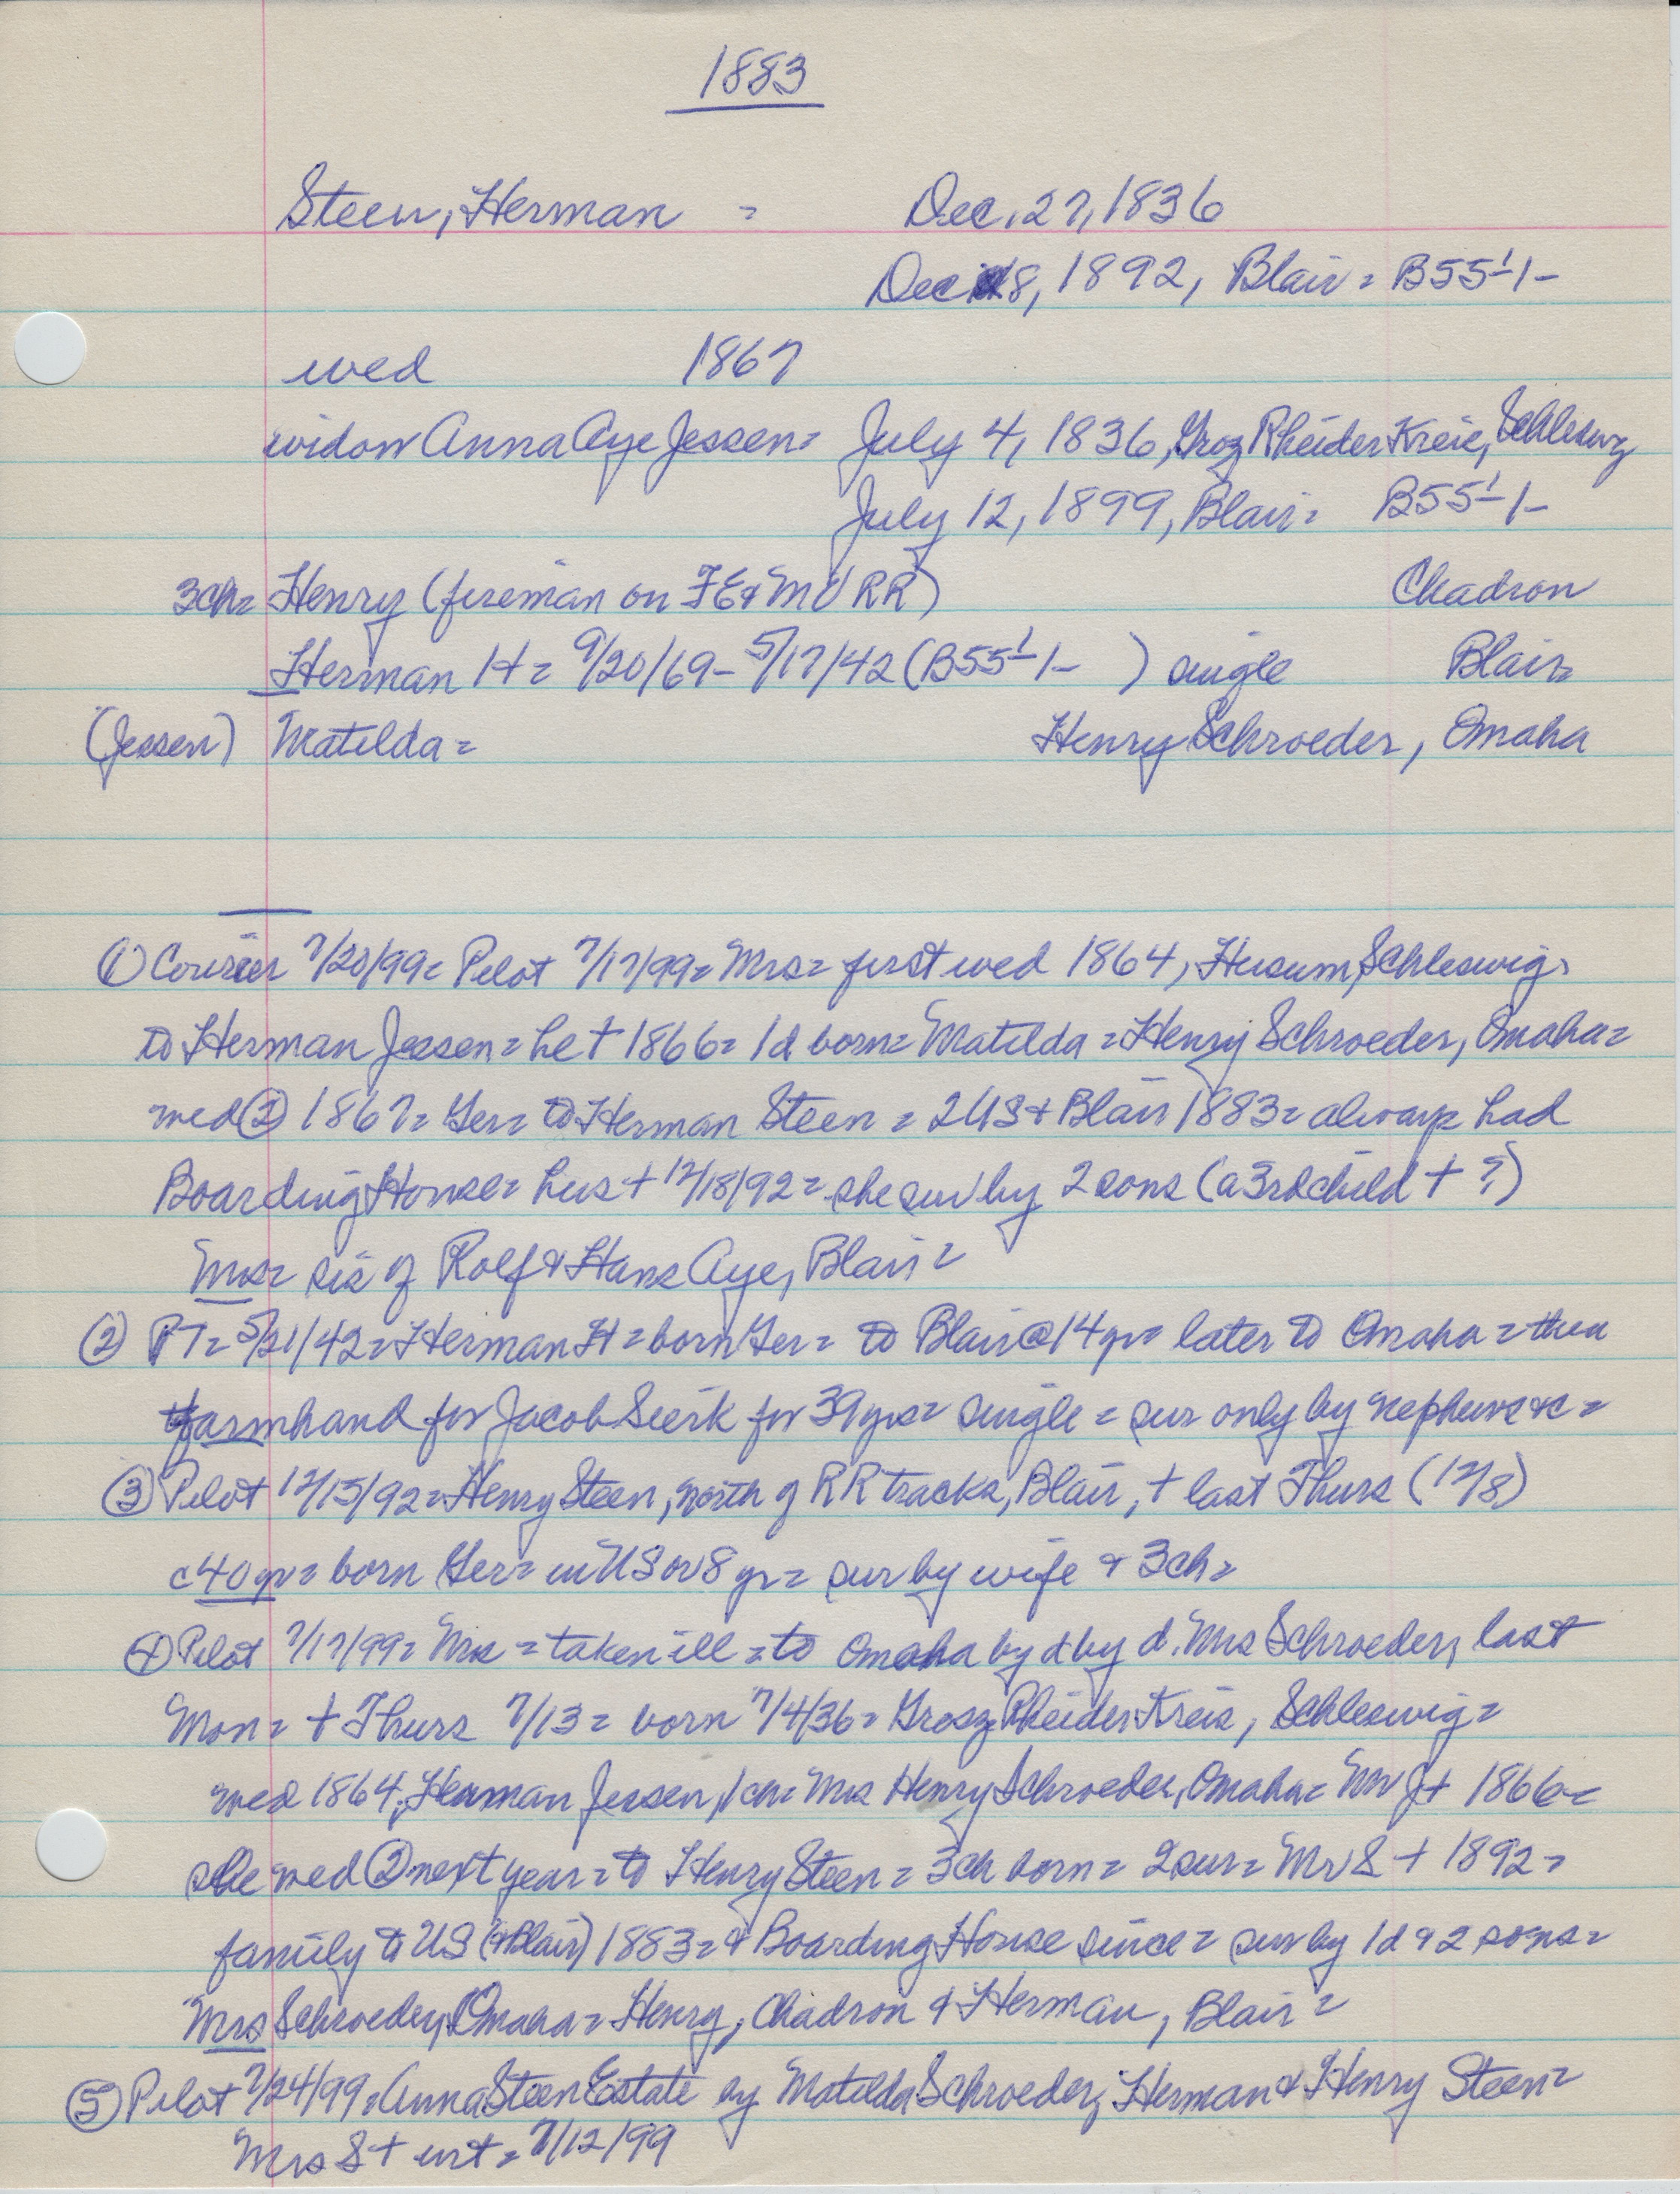 1883
Steen, Herman = Dec. 27, 1836
Dec 8, 1892, Blair = B55-1-1-
wed 1867
widow Anna Aye Jessen = July 4, 1836, Grosz Rheider Kreis, Schleswig
July 12, 1899, Blair = B55-1-1-
3ch= Henry (fireman on FE&MV RR) Chadron
Herman H = 9/20/69 - 5/17/42 (B55-1-1- ) single Blair=
(Jessen) Matilda = Henry Schroeder, Omaha
① Courier 7/20/99= Pilot 7/17/99= Mrs= first wed 1864, Husum, Schleswig,
to Herman Jessen= he + 1866= 1d born= Matilda = Henry Schroeder, Omaha=
wed ② 1867= Ger= to Herman Steen = 2US & Blair 1883= always had
Boarding House= hus + 12/18/92= she sur by 2 sons (a 3rd child + ?)
Mrs= sis of Rolf & Hans Aye, Blair=
② PT= 5/21/42= Herman H = born Ger= to Blair @ 14 yr= later to Omaha = then
farmhand for Jacob Sierk for 39 yrs= single = sur only by nephews &c =
③ Pilot 12/15/92= Henry Steen, north of RR tracks, Blair, + last Thurs (12/8)
c 40 yr= born Ger= in US ov 8 yr= sur by wife & 3ch=
④ Pilot 7/17/99= Mrs = taken ill = to Omaha by d by d. Mrs Schroeder, last
Mon= + Thurs 7/13 = born 7/4/36= Grosz Rheider Kreis, Schleswig=
wed 1864, Herman Jessen, 1ch= Mrs Henry Schroeder, Omaha= Mr J + 1866=
she wed ② next year= to Henry Steen = 3ch born= 2 sur= Mr S + 1892=
family to US (& Blair) 1883= & Boarding House since = sur by 1d & 2 sons=
Mrs Schroeder, Omaha= Henry, Chadron & Herman, Blair=
⑤ Pilot 7/24/99= Anna Steen Estate by Matilda Schroeder, Herman & Henry Steen=
Mrs S + int = 7/12/99